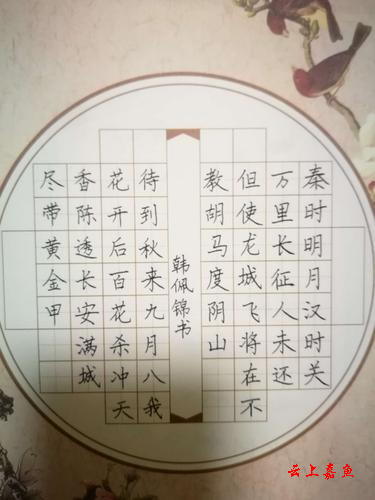 秦时明月汉时关
万里长征人未还
但使龙城飞将在不
教胡马度阴山
韩佩锦书
待到秋来九月八我
花开后百花杀冲天
香陈透长安满城
尽带黄金甲
云上嘉鱼